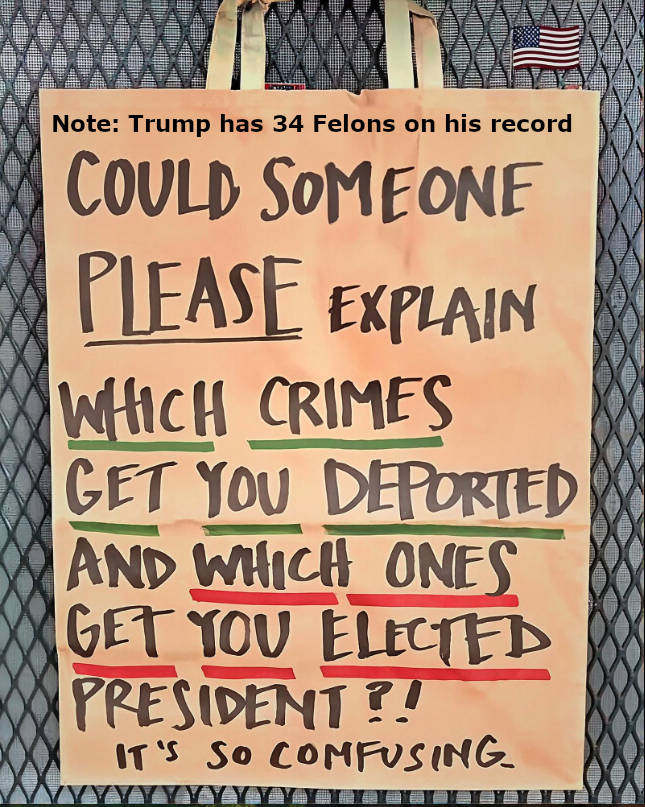 Note: Trump has 34 Felons on his record
COULD SOMEONE
PLEASE EXPLAIN
WHICH CRIMES
GET YOU DEPORTED
AND WHICH ONES
GET YOU ELECTED
PRESIDENT?!
IT'S SO COMFUSING.